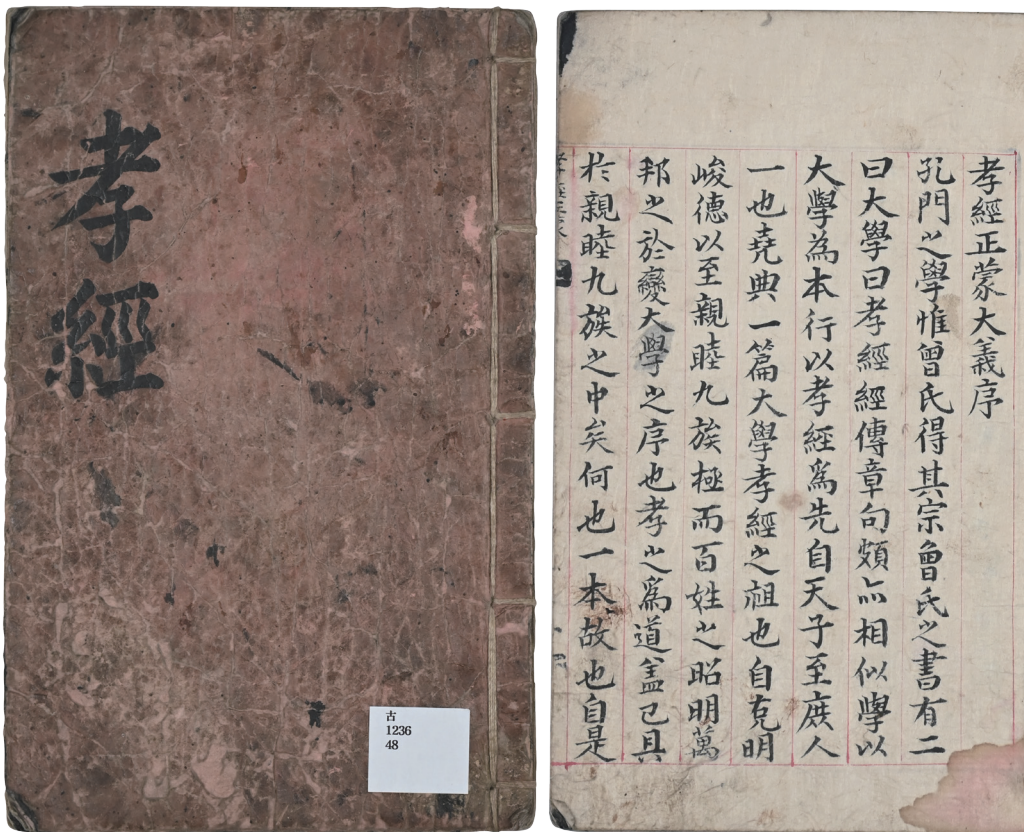 孝經
古
1236
48
孝經正蒙大義序
孔門之學惟曾氏得其宗曾氏之書有二
曰大學曰孝經經傳章句頗亦相似學以
大學為本行以孝經爲先自天子至庶人
一也堯典一篇大學孝經之祖也自克明
峻德以至親睦九族極而百姓之昭明萬
邦之於變大學之序也孝之爲道盖已具
於親睦九族之中矣何也一本故也自是